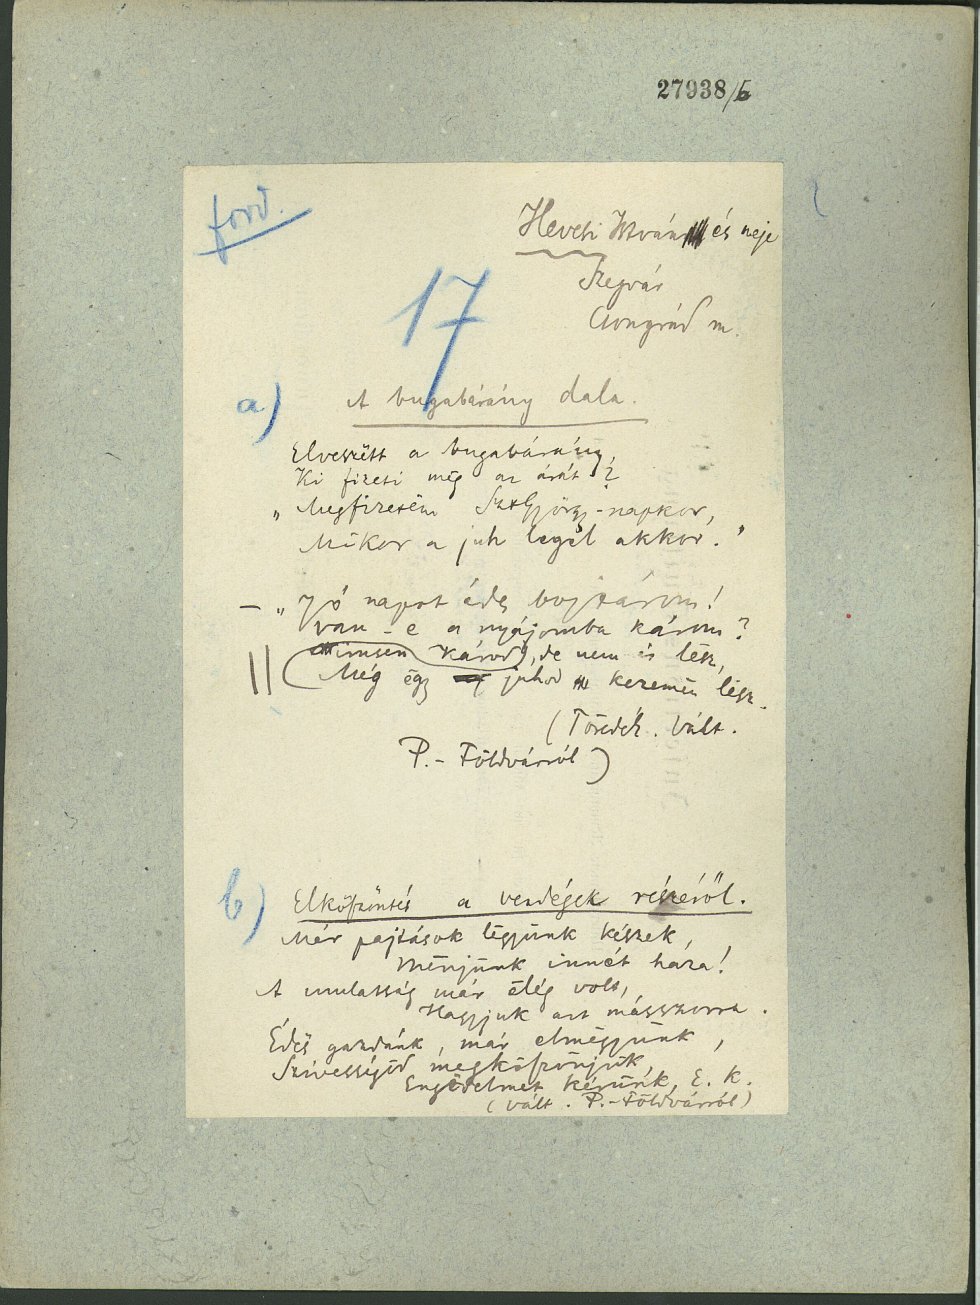 27938/6
ford.
Hevesi István és neje
Szegvár
Csongrád m.
17
a)
A bugabárány dala.
Elveszëtt a bugabárány,
Ki fizeti mëg az árát?
"Megfizetëm Szt György-napkor,
Mikor a juh legel akkor."
– "Jó napot édes bojtárom!
Van-e a nyájomba károm?
Nincsen károd, de nem is lësz,
Még ëgy juhod kezemën lësz.
(Töredék. Vált.
P.-Földvárról)
b)
Elköszöntés a vendégek részéről.
Már pajtások légyünk készek,
Mënjünk innét haza!
A mulatság már elég volt,
Hagyjuk azt másszorra.
Édës gazdánk, már elmëgyünk,
Szívességöd mëgköszönjük,
Engëdelmet kérünk, E. K.
(Vált. P.-Földvárról)